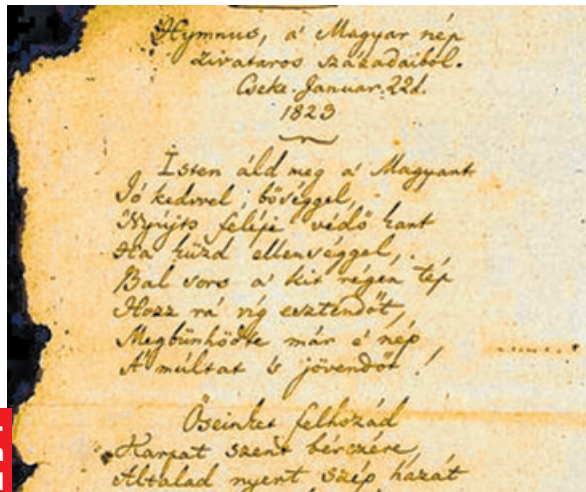 Hymnus, a' Magyar nép
zivataros századaiból.
Cseke. Januar. 22d.
1823
Isten áld meg a' Magyart
Jó kedvvel, bőséggel,
Nyújts feléje védő kart
Ha küzd ellenséggel,
Bal sors a' kit régen tép
Hozz rá víg esztendőt,
Megbűnhődte már e' nép
A' múltat 's jövendőt!
Őseinket felhozád
Kárpát szent bérczére,
Általad nyert szép hazát